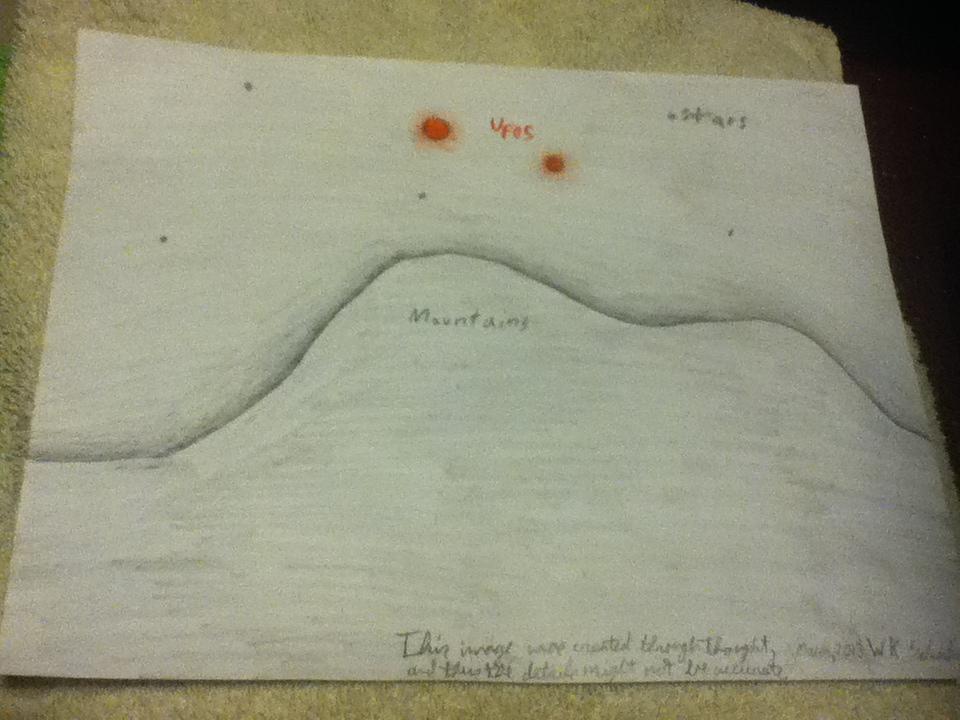 UFOS
stars
Mountains
This image was created through thought,
and thus the details might not be accurate.